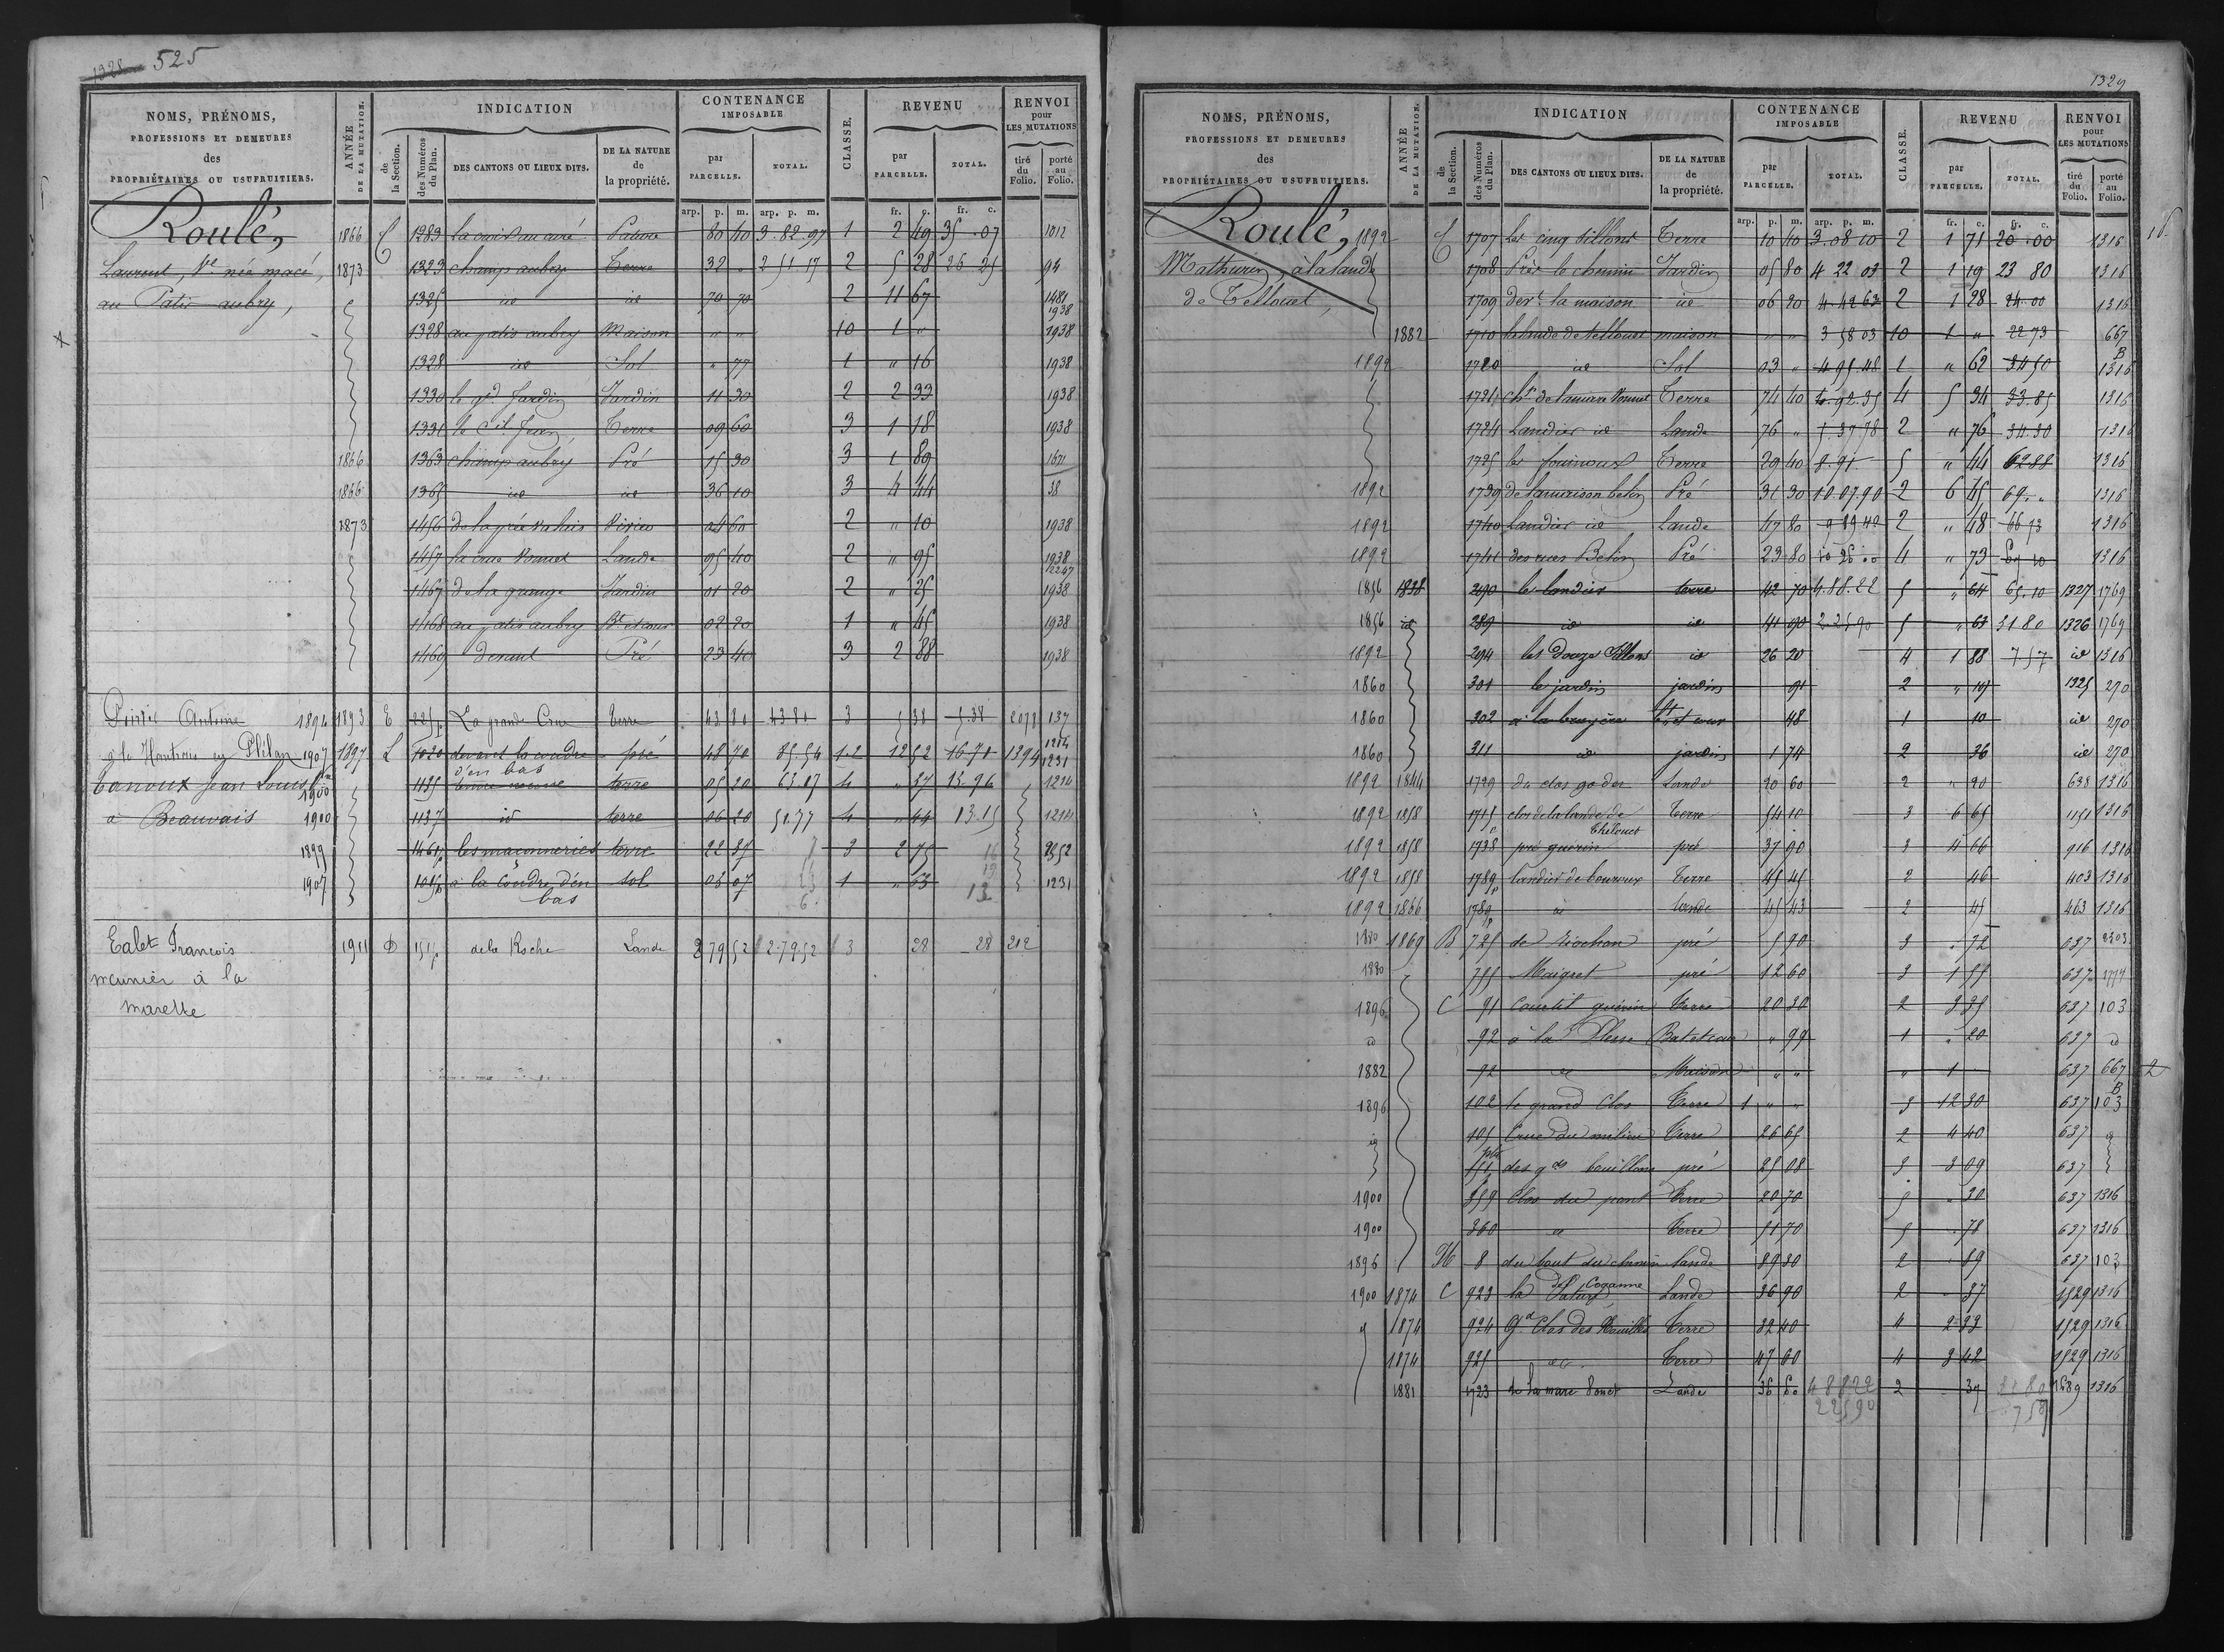 1328 525
NOMS, PRÉNOMS,
PROFESSIONS ET DEMEURES
des
PROPRIÉTAIRES OU USUFRUITIERS.
ANNÉE
DE LA MUTATION.
INDICATION
de
la Section.
des Numéros
du Plan.
DES CANTONS OU LIEUX DITS.
DE LA NATURE
de
la propriété.
CONTENANCE
IMPOSABLE
par
PARCELLE.
TOTAL.
CLASSE.
REVENU
par
PARCELLE.
TOTAL.
RENVOI
pour
LES MUTATIONS
tiré
du
Folio.
porté
au
Folio.
arp. p. m. arp. p. m. fr. c. fr. c.
Roulé, 1866 C 1283 la croix au curé Pature 80 40 3.82.97 1 2 49 35.07 1012
Laurent, Ve née macé, 1873 1323 champ aubry Terre 32 " 2 51 17 2 5 28 26 25 94
au Patis aubry, 1325 id id 70 70 2 11 67 1481 1938
1328 au patis aubry Maison " " 10 1 " 1938
1328 id Sol " 77 1 " 16 1938
1330 le gd Jardin Jardin 11 30 2 2 33 1938
1331 Terre 09 60 3 1 18 1938
1866 1363 champ aubry Pré 15 30 3 1 89 1671
1866 1365 id id 36 10 3 4 44 38
1873 1456 04 60 2 " 10 1938
1457 Lande 95 40 2 " 95 1938 2247
1467 de la grange Jardin 01 20 2 " 25 1938
1468 au patis aubry Bt et cour 02 20 1 " 45 1938
1469 devant Pré 23 40 3 2 88 1938
Antoine 1894 1893 E 225p La grande Crue terre 43 80 43 80 3 5 38 5.38 2073 137
en Plélan 1907 1897 L 1020 devant la coudre pré 48 70 85.54 1-2 12 52 16 71 1394 1214 1231
d'en bas
Tanoux Jean Louis 1900 1135 terre 05 20 63.07 4 " 37 13.96 1214
à Beauvais 1900 1137 id terre 06 20 51.77 4 " 44 13.15 1214
1899 1461p les maçonneries terre 22 37 3 2 75 2352
1907 à la Coudre d'en sol 03 07 1 " 63 1231
bas
Ealet François 1911 D 151p de la Roche Lande 2 79 52 2.79.52 3 28 28 212
meunier à la
marette
1329
NOMS, PRÉNOMS,
PROFESSIONS ET DEMEURES
des
PROPRIÉTAIRES OU USUFRUITIERS.
ANNÉE
DE LA MUTATION.
INDICATION
de
la Section.
des Numéros
du Plan.
DES CANTONS OU LIEUX DITS.
DE LA NATURE
de
la propriété.
CONTENANCE
IMPOSABLE
par
PARCELLE.
TOTAL.
CLASSE.
REVENU
par
PARCELLE.
TOTAL.
RENVOI
pour
LES MUTATIONS
tiré
du
Folio.
porté
au
Folio.
arp. p. m. arp. p. m. fr. c. fr. c.
Roulé, 1892 C 1707 les cinq sillons Terre 10 40 3.08 10 2 1 71 20.00 1316
Mathurin, à la lande 1708 Près le chemin Jardin 05 80 4 22 03 2 1 19 23 80 1316
de Tellouet, 1709 derr la maison id 06 20 4.42 63 2 1 28 24.00 1316
1882 1710 la lande de tellouet maison " " 3 58 03 10 1 " 22 73 667 B
1892 1720 id Sol 03 " 4 95.48 1 " 62 34 50 1316
1721 Terre 74 40 4.92.35 4 5 34 33.85 1316
1724 Landier id Lande 76 " 5.37 78 2 " 76 34.30 1316
1725 Terre 29 40 8.91 5 " 44 62 88 1316
1892 1739 Pré 31 30 10.07.90 2 6 45 69. " 1316
1892 1740 Landier id Lande 47 80 9 89 40 2 " 48 66 73 1316
1892 1741 Pré 23 80 4 " 73 1316
1856 1838 290 le landier terre 42 70 4.88.22 5 " 64 65.10 1327 1769
1856 id 289 id id 41 90 2.25 90 5 " 63 31 80 1326 1769
1892 294 les Douze Sillons id 26 20 4 1 88 7 57 id 1316
1860 301 le jardin jardin 91 2 " 19 1325 270
1860 302 à la bruyère bt et cour 48 1 10 id 270
1860 311 id jardin 1 74 2 36 id 270
1892 1844 1729 Lande 20 60 2 " 20 638 1316
1892 1858 1715 clos de la lande de Terre 54 10 3 6 65 1151 1316
Thelouet
1892 1858 1738 pré guérin pré 37 90 3 4 66 916 1316
1892 1858 1789p landier de bouroux Terre 45 45 2 46 403 1316
1892 1866 1789p id lande 45 43 2 45 463 1316
1880 1869 B 725 pré 5 90 3 " 72 637 2303
1880 755 Maigret pré 12 60 3 1 55 637 1777
1896 C 91 Courtil guérin Terre 20 30 2 3 35 637 103
id 92 à la Plesse Bat et cour " 99 1 " 20 637 id
1882 92 id Maison " " " 1 637 667 B
1896 102 le grand Clos Terre 1 " " 3 12 30 637 103
id 105 Crue du milieu Terre 26 65 2 4 40 637 id
des gds bouillons pré 25 08 3 3 09 637
1900 359 Clos du pont Terre 20 70 5 " 30 637 1316
1900 360 id Terre 51 70 5 " 78 637 1316
1896 H 8 du bout du chemin lande 89 30 2 89 637 103
1900 1874 C 923 Lande 36 90 2 37 1529 1316
1874 924 Gd Clos des Rouillés Terre 32 40 4 2 33 1529 1316
1874 925 id Terre 47 60 4 3 42 1529 1316
1881 1723 de la mare Lande 36 60 4 88 22 2 37 31 80 1689 1316
2 25 90 7 59